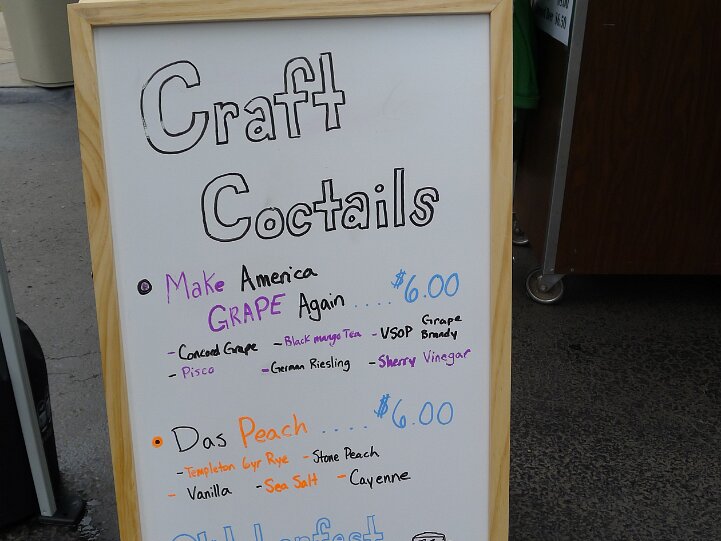 Craft
Coctails
Make America
GRAPE Again .... $6.00
- Concord Grape - Black mango Tea - VSOP Grape Brandy
- Pisco - German Riesling - Sherry Vinegar
Das Peach .... $6.00
- Templeton 6yr Rye - Stone Peach
- Vanilla - Sea Salt - Cayenne